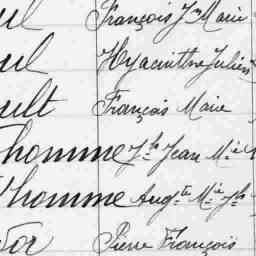 ul François Jn Marie
ul Hyacinthe Julien
ult François Marie
homme Jh Jean Mie
l'homme Augte Mie Jh
Pierre François